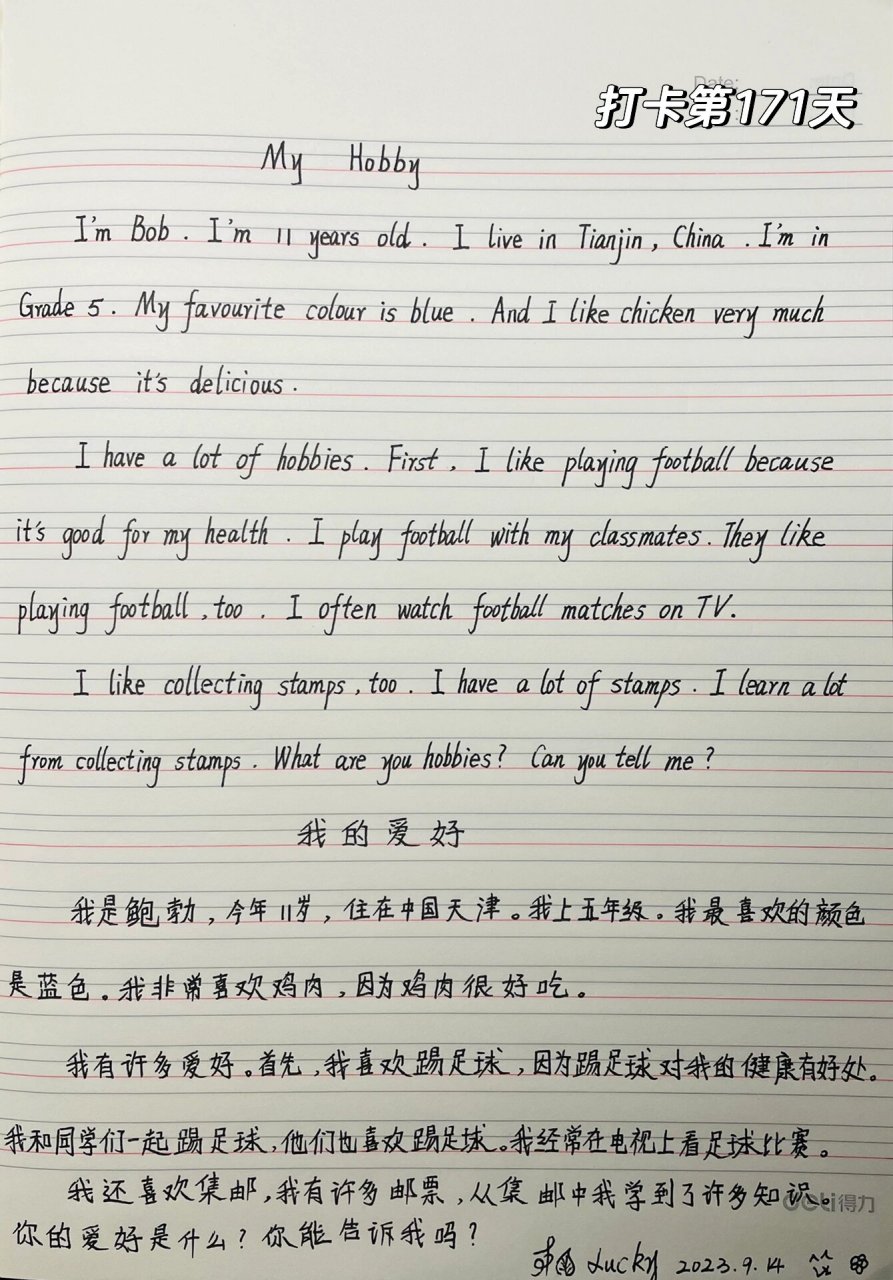 Date:
打卡第171天
My Hobby
I'm Bob. I'm 11 years old. I live in Tianjin, China. I'm in
Grade 5. My favourite colour is blue. And I like chicken very much
because it's delicious.
I have a lot of hobbies. First, I like playing football because
it's good for my health. I play football with my classmates. They like
playing football, too. I often watch football matches on TV.
I like collecting stamps, too. I have a lot of stamps. I learn a lot
from collecting stamps. What are you hobbies? Can you tell me?
我的爱好
我是鲍勃，今年11岁，住在中国天津。我上五年级。我最喜欢的颜色
是蓝色。我非常喜欢鸡肉，因为鸡肉很好吃。
我有许多爱好。首先，我喜欢踢足球，因为踢足球对我的健康有好处。
我和同学们一起踢足球，他们也喜欢踢足球。我经常在电视上看足球比赛。
我还喜欢集邮，我有许多邮票，从集邮中我学到了许多知识。
deli得力
你的爱好是什么？你能告诉我吗？
Lucky 2023.9.14